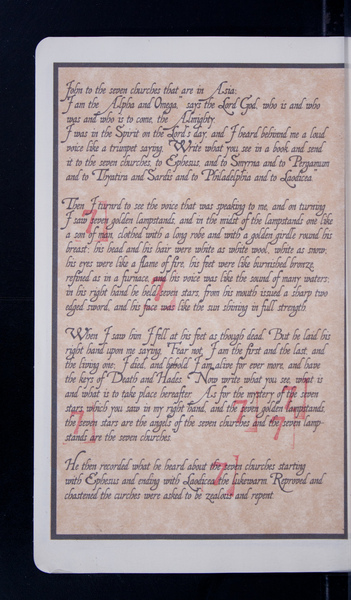 John to the seven churches that are in Asia;
"I am the Alpha and Omega," says the Lord God, who is and who
was and who is to come, the Almighty.
I was in the Spirit on the Lord's day, and I heard behind me a loud
voice like a trumpet saying, "Write what you see in a book and send
it to the seven churches, to Ephesus, and to Smyrna and to Pergamum
and to Thyatira and Sardis and to Philadelphia and to Laodicea."
Then I turned to see the voice that was speaking to me, and on turning
I saw seven golden lampstands, and in the midst of the lampstands one like
a son of man, clothed with a long robe and with a golden girdle round his
breast; his head and his hair were white as white wool, white as snow;
his eyes were like a flame of fire, his feet were like burnished bronze,
refined as in a furnace, and his voice was like the sound of many waters;
in his right hand he held seven stars, from his mouth issued a sharp two
edged sword, and his face was like the sun shining in full strength.
When I saw him I fell at his feet as though dead. But he laid his
right hand upon me saying, "Fear not, I am the first and the last, and
the living one; I died, and behold I am alive for ever more, and have
the keys of Death and Hades. Now write what you see, what is
and what is to take place hereafter. As for the mystery of the seven
stars which you saw in my right hand, and the seven golden lampstands,
the seven stars are the angels of the seven churches and the seven lamp-
stands are the seven churches.
He then recorded what he heard about the seven churches starting
with Ephesus and ending with Laodicea, the lukewarm. Reproved and
chastened the curches were asked to be zealous and repent.